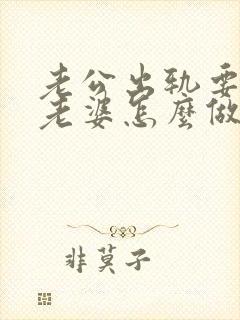 老公出軌要
老婆怎麼做
非莫子